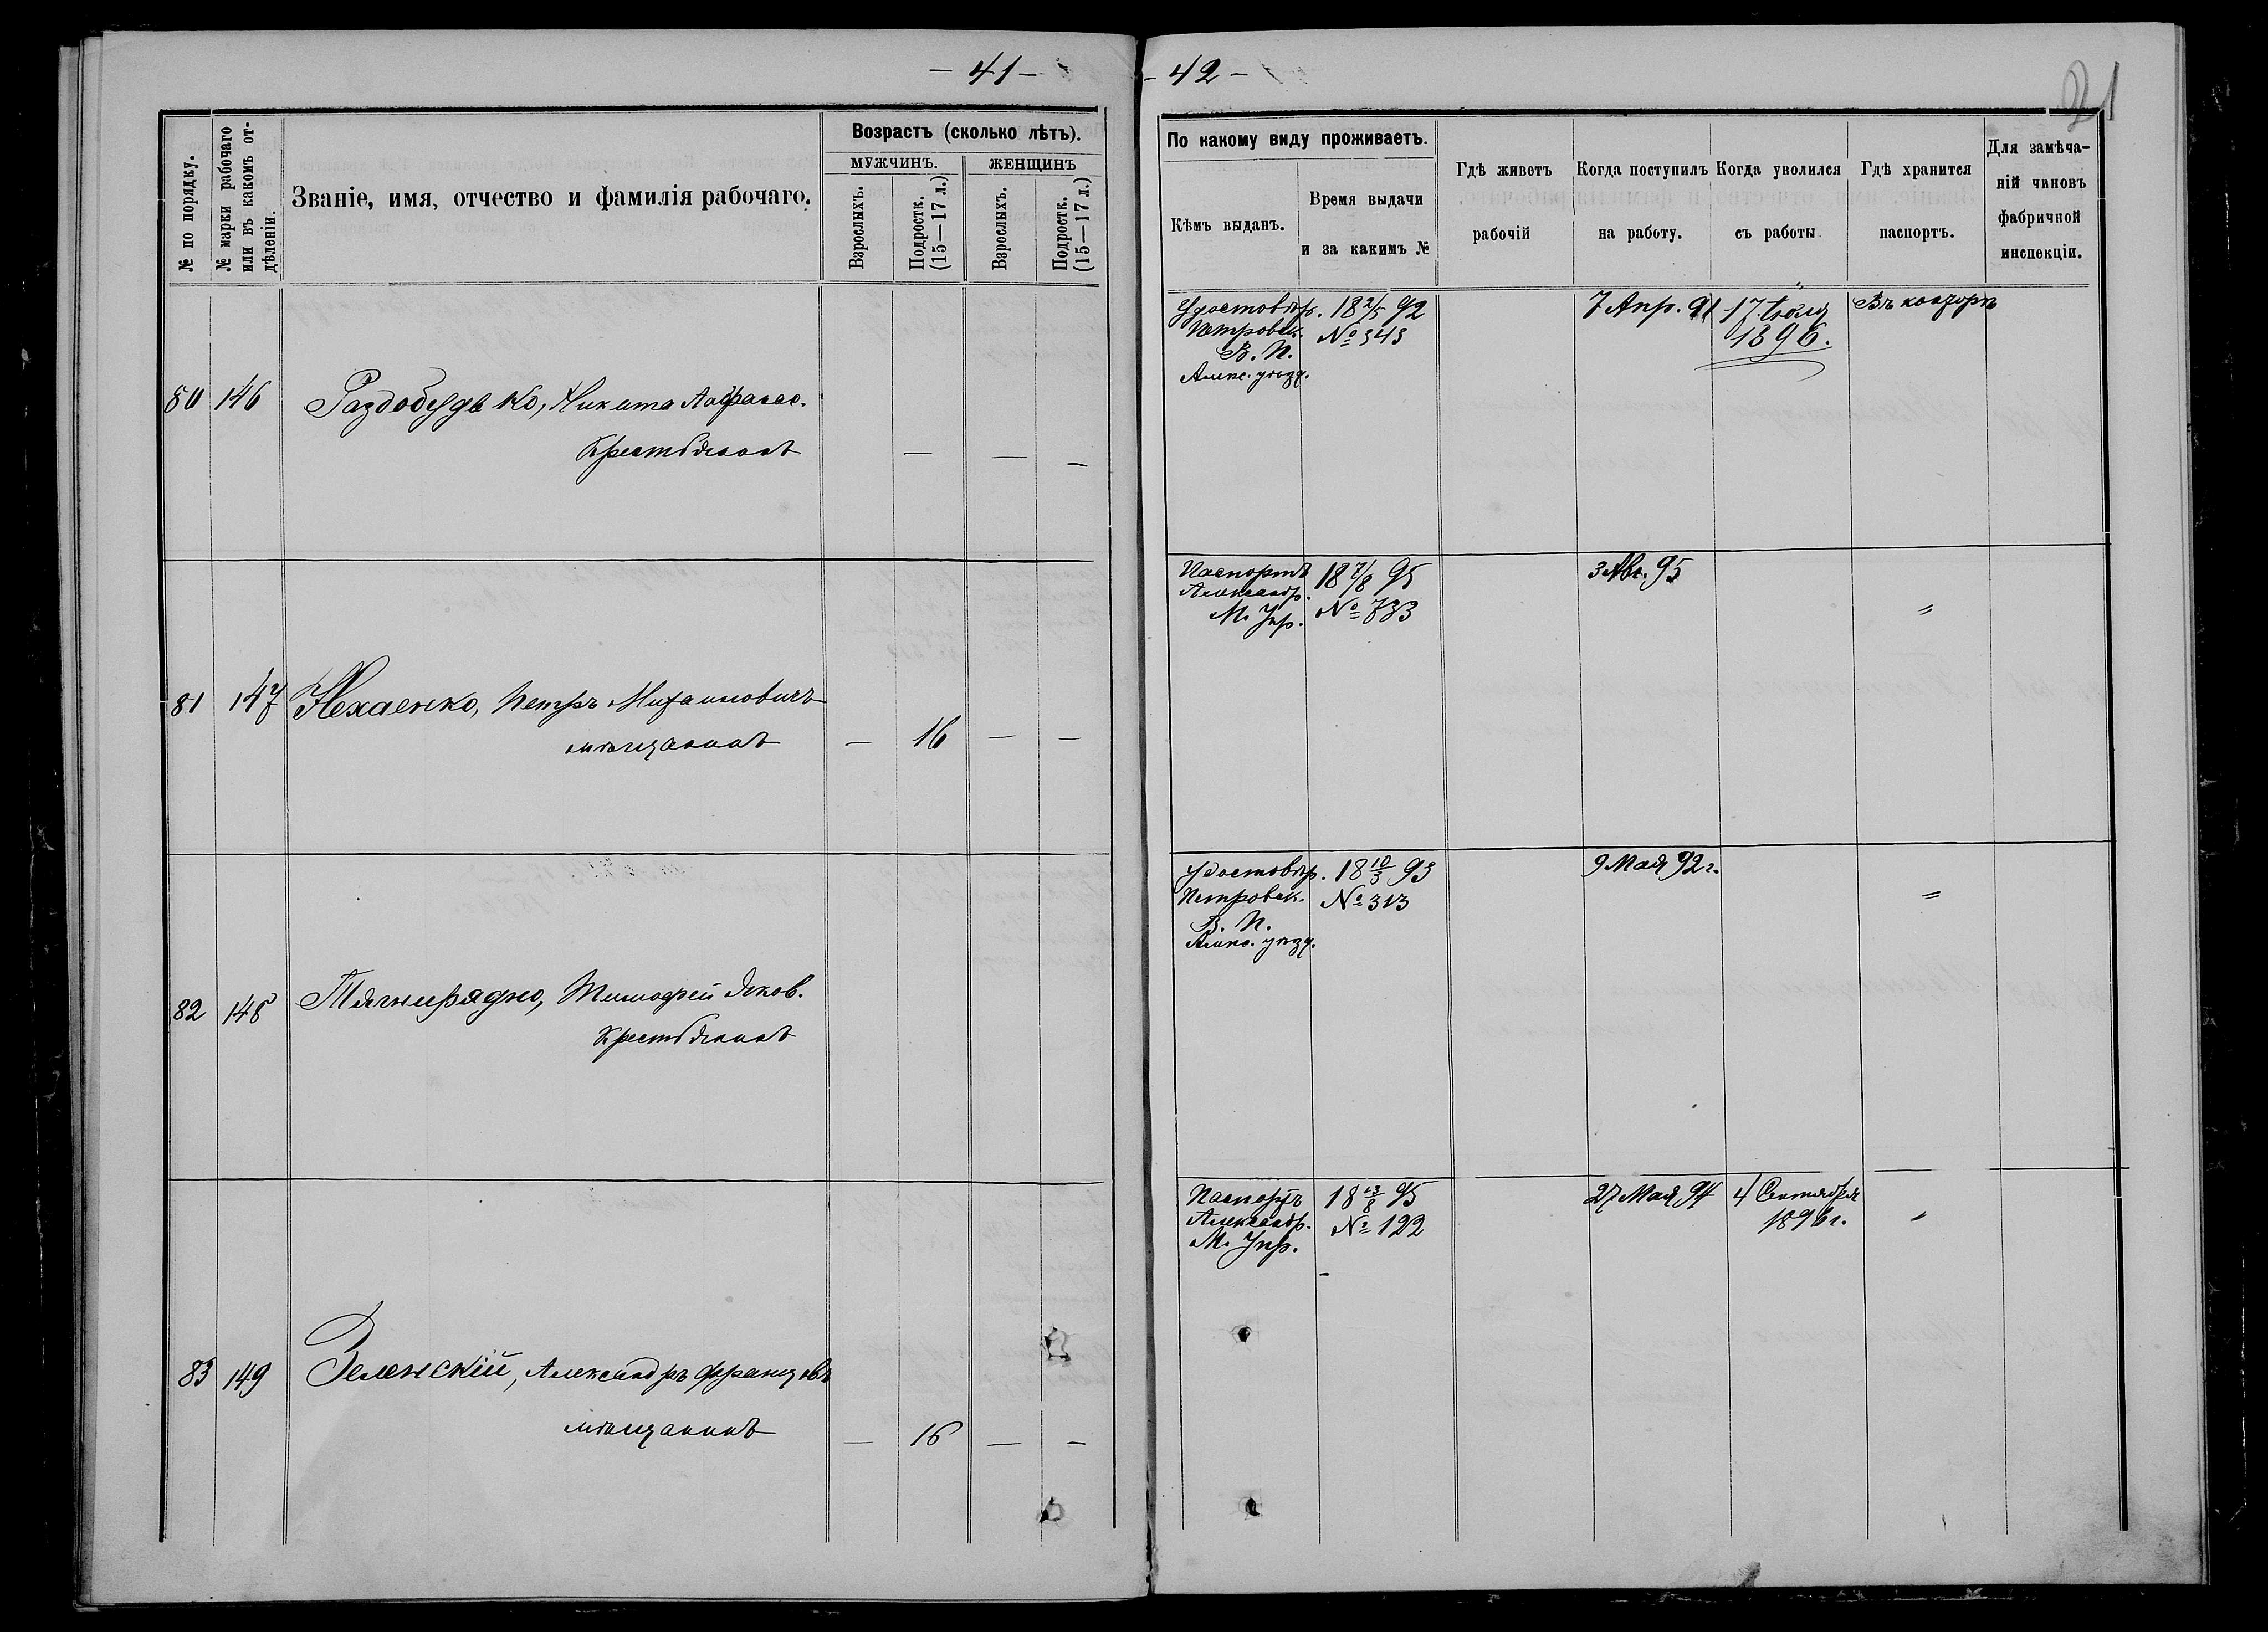 — 41 —
№ по порядку.
№ марки рабочаго
или въ какомъ от-
дѣленіи.
Званіе, имя, отчество и фамилія рабочаго.
Возрастъ (сколько лѣтъ).
МУЖЧИНЪ.
ЖЕНЩИНЪ
Взрослыхъ.
Подростк.
(15—17 л.)
Взрослыхъ.
Подростк.
(15—17 л.)
80 146 Раздобудько, Никита Афанас.
Крестьянинъ — — —
81 147 Нехаенко, Петръ Михаиловичъ
мѣщанинъ — 16 — —
82 148 Тягнирядно, Тимофей Яков.
Крестьянинъ
83 149 Зеленскій, Александръ Францовъ
мѣщанинъ — 16 — —
— 42 —
21
По какому виду проживаетъ.
Кѣмъ выданъ.
Время выдачи
и за какимъ №
Гдѣ живетъ
рабочій
Когда поступилъ
на работу.
Когда уволился
съ работы
Гдѣ хранится
паспортъ.
Для замѣча-
ній чиновъ
фабричной
инспекціи.
Удостовѣр. 18 2/5 92 7 Апр. 91 17 Іюля Въ конторѣ
Петровск. № 343 1896.
В. П.
Алекс. уѣзд.
Паспортъ 18 7/8 95 3 Авг. 95
Александр. № 733 〃
М. Упр.
Удостовѣр. 18 10/3 93 9 Мая 92 г.
Петровск. № 313 〃
В. П.
Алекс. уѣзд.
Паспортъ 18 23/8 95 27 Мая 94 4 Сентября
Александр. № 122 1896 г. 〃
М. Упр.